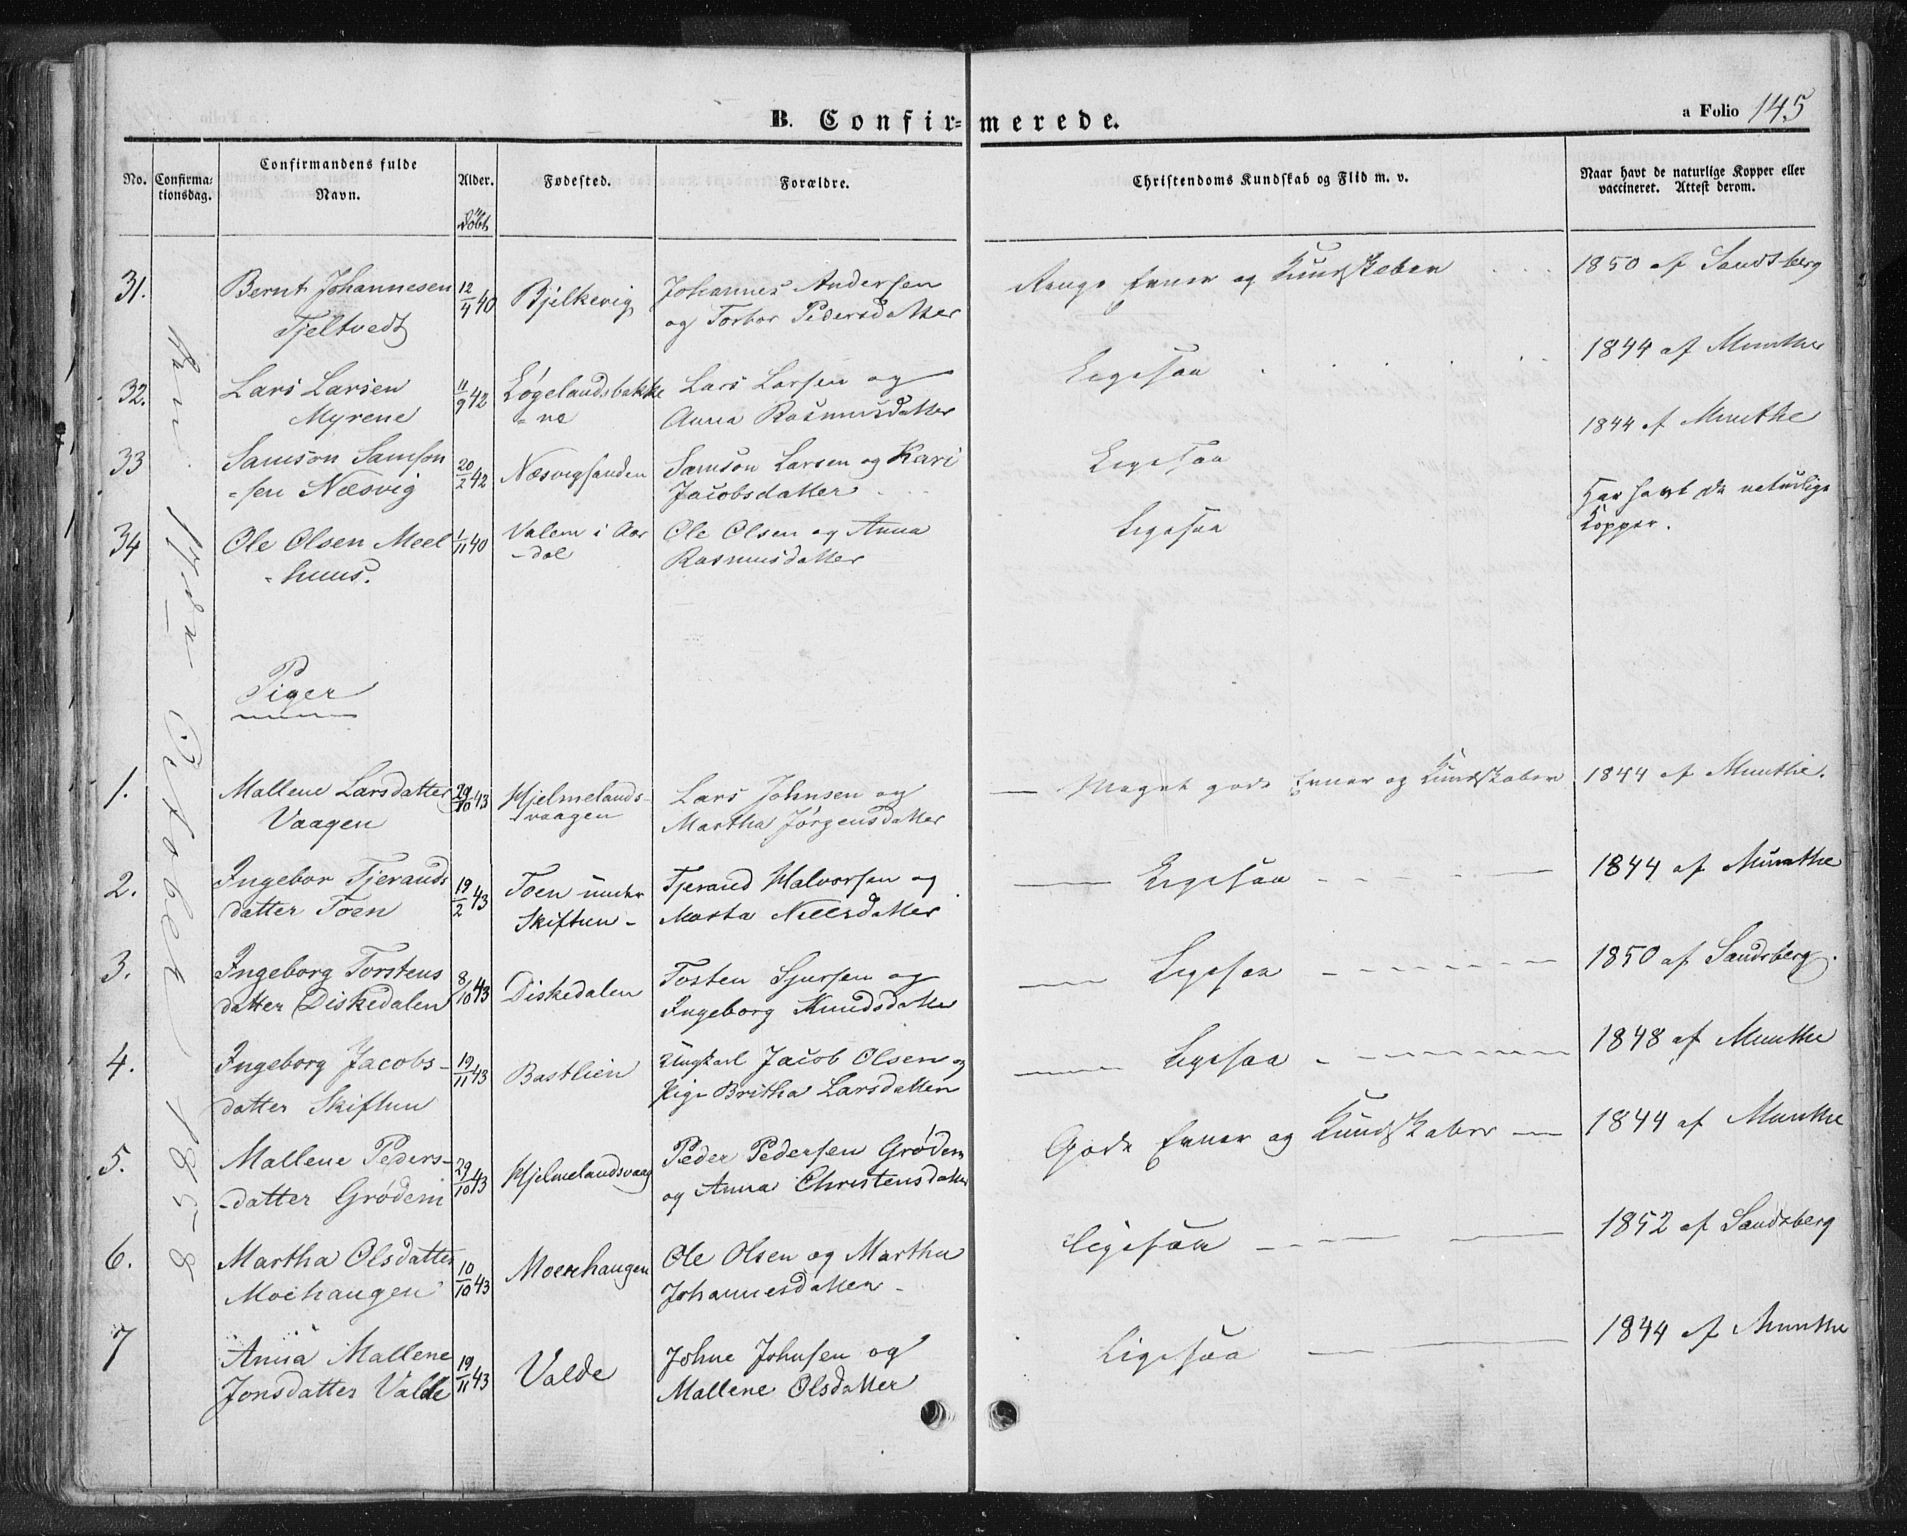 B. Confirmerede.
a Folio 145
No.
Confirmationsdag.
Confirmandens fulde Navn.
Alder.
Fødested.
Forældre.
Christendoms Kundskab og Flid m. v.
Naar havt de naturlige Kopper eller vaccineret. Attest derom.
Døbt
den 17de October 1858
31. Bernt Johannesen 12/4 40 Bjelkevig Johannes Andersen Ringe Evner og Kundskaber 1850 af Sandsberg
Tjeltvedt og Torbor Pedersdatter
32. Lars Larsen 11/9 42 Løgelandsbakke Lars Larsen og Ligesaa 1844 af Munthe
Myrene -ne Anna Rasmusdatter
33 Samson Samson 20/2 42 Næsvigsanden Samson Larsen og Kari Ligesaa 1844 af Munthe
-sen Næsvig Jacobsdatter
34 Ole Olsen Meel 1/11 40 Valem i Aar Ole Olsen og Anna Ligesaa Har havt de naturlige
-huus. -dal Rasmusdatter Kopper.
Piger
1. Mallene Larsdatter 29/10 43 Hjelmelands- Lars Johnsen og Meget gode Evner og Kundskaber 1844 af Munthe.
Vaagen vaagen Martha Jørgensdatter
2. Ingebor Tjerands 19/2 43 Toen under Tjerand Halvorsen og Ligesaa 1844 af Munthe
datter Toen Skiftun - Marta Nielsdatter
3. Ingeborg Torstens 8/10 43 Diskedalen Tosten Sjursen og Ligesaa 1850 af Sandsberg.
datter Diskedalen Ingeborg Knudsdatter
4. Ingeborg Jacobs- 19/11 43 Bastlien Ungkarl Jacob Olsen og Ligesaa 1848 af Munthe
datter Skiftun Pige Britha Larsdatter
5. Mallene Peders- 29/10 43 Hjelmelandsvaag Peder Pedersen Grødem Gode Evner og Kundskaber 1844 af Munthe
-datter Grødem og Anna Christensdatter
6. Martha Olsdatter 10/10 43 Moehaugen Ole Olsen og Martha Ligesaa 1852 af Sandsberg
Moehaugen Johannesdatter
7 Anna Mallene 19/11 43 Valde Johne Johnsen og Ligesaa 1844 af Munthe
Jonsdatter Valde Mallene Olsdatter